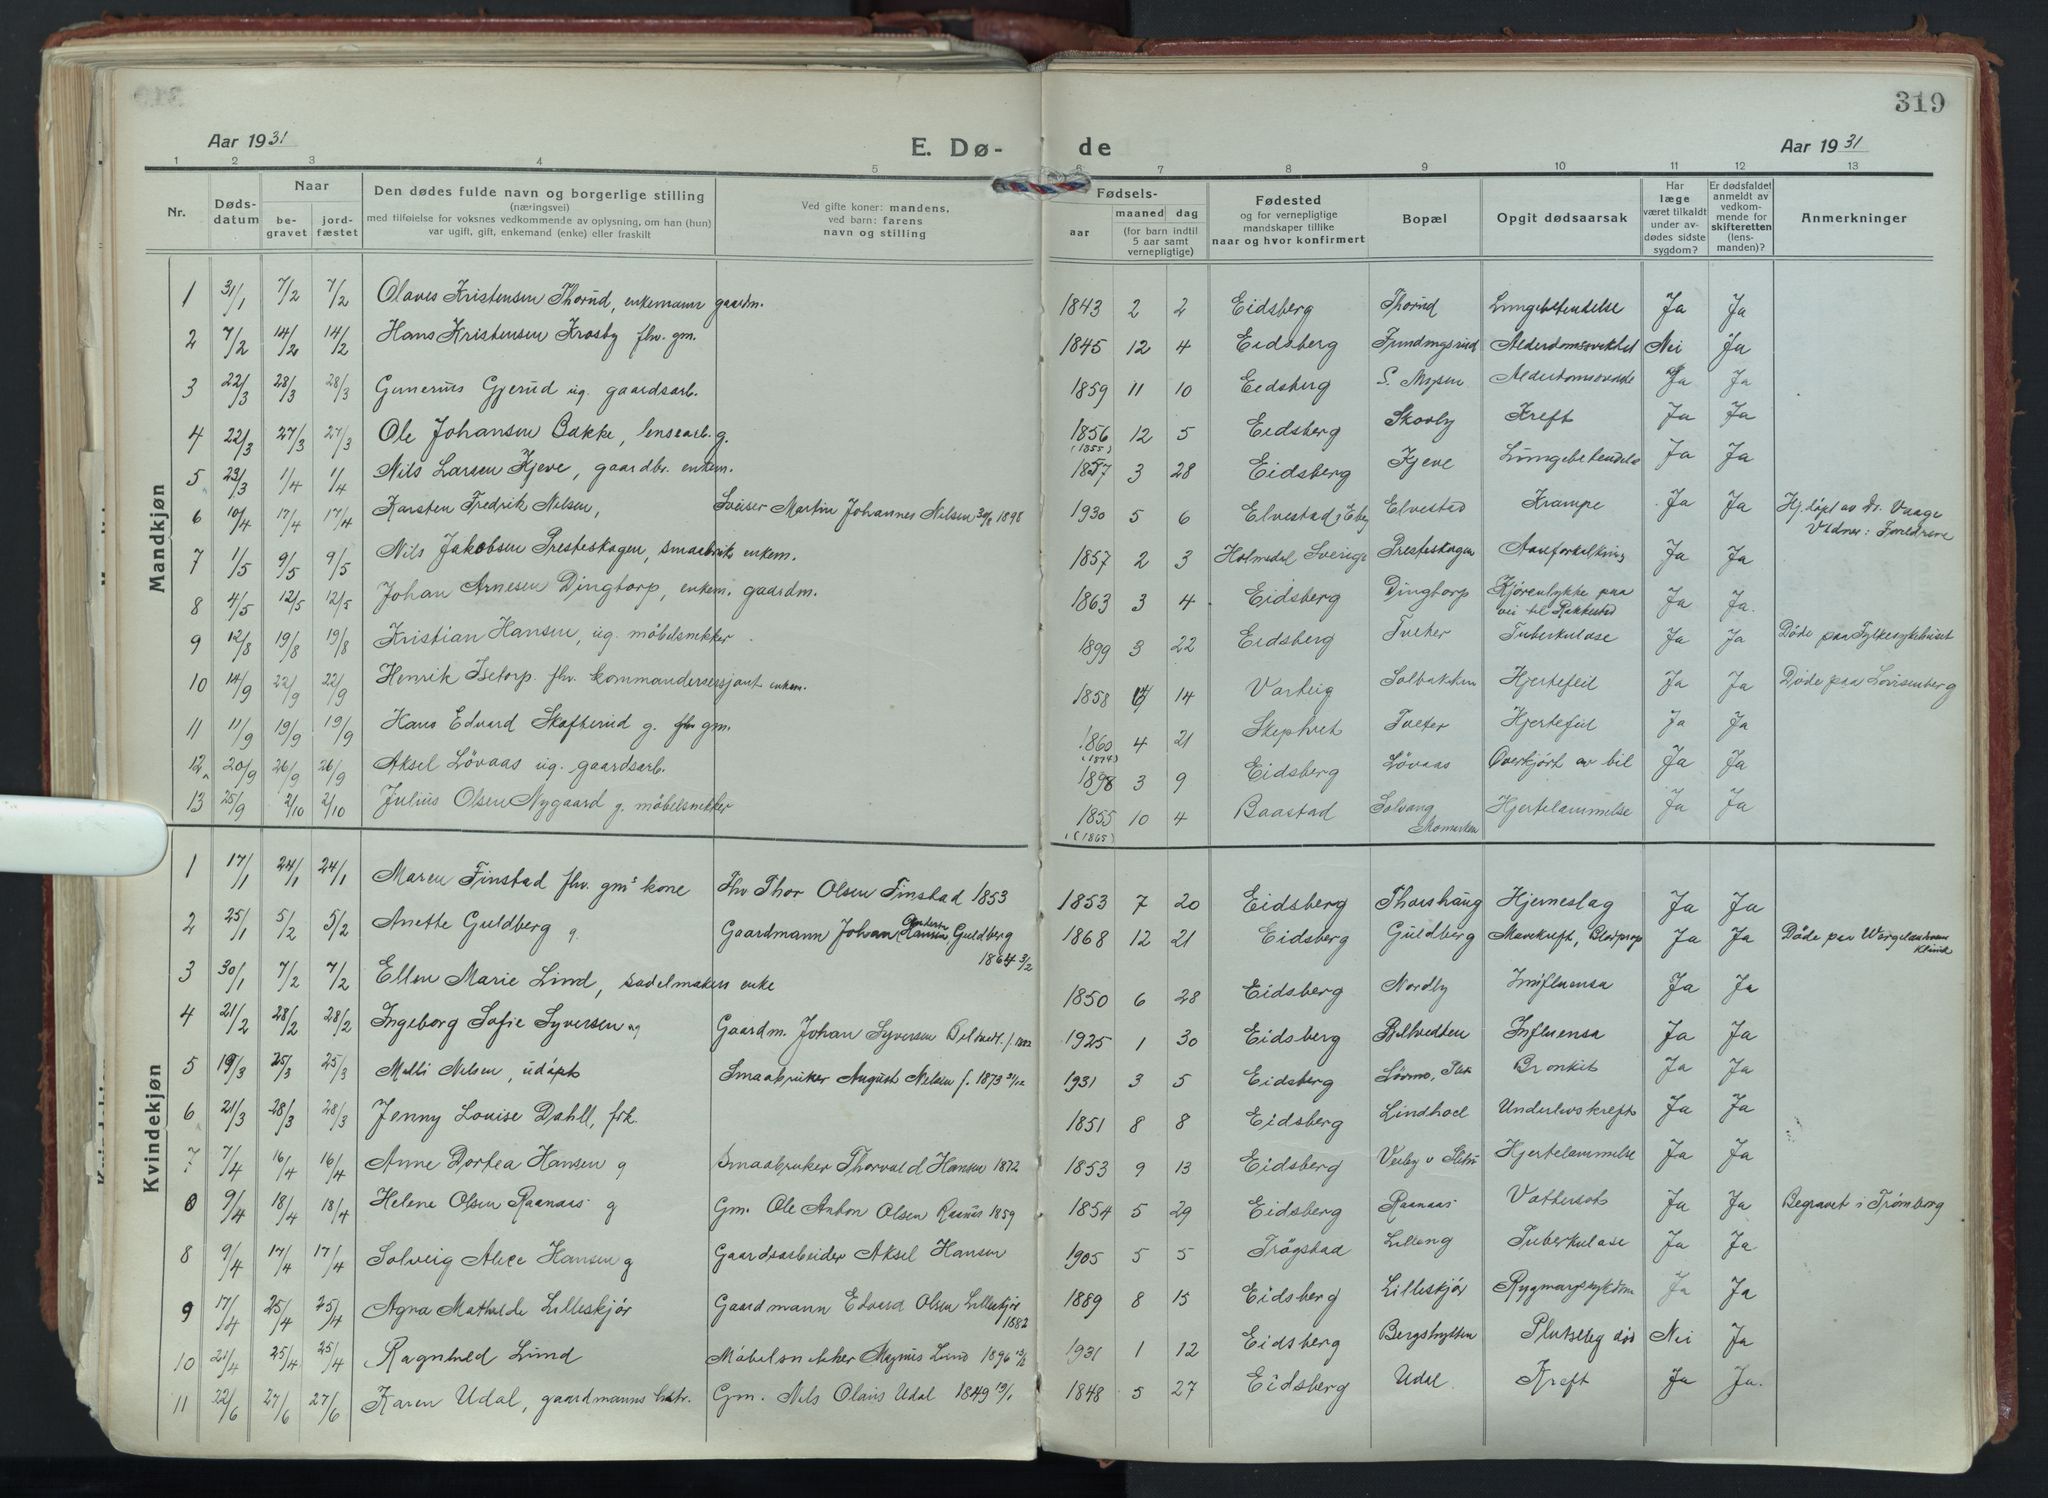 319
Aar 1931
E. Dø-
de
Aar 1931
1 2 3 4 5 6 7 8 9 10 11 12 13
Nr.
Døds-
datum
Naar
be-
gravet
jord-
fæstet
Den dødes fulde navn og borgerlige stilling
(næringsvei)
med tilføielse for voksnes vedkommende av oplysning, om han (hun)
var ugift, gift, enkemand (enke) eller fraskilt
Ved gifte koner: mandens,
ved barn: farens
navn og stilling
Fødsels-
aar
maaned
dag
(for barn indtil
5 aar samt
vernepligtige)
Fødested
og for vernepligtige
mandskaper tillike
naar og hvor konfirmert
Bopæl
Opgit dødsaarsak
Har
læge
været tilkaldt
under av-
dødes sidste
sygdom?
Er dødsfaldet
anmeldt av
vedkom-
mende for
skifteretten
(lens-
manden)?
Anmerkninger
Mandkjøn
1 31/1 7/2 7/2 Olaves Kristensen Thorud, enkemann gaardm. 1843 2 2 Eidsberg Thorud Lungebetendelse Ja Ja
2 7/2 14/2 14/2 Hans Kristensen Krosby fhv. gm. 1845 12 4 Eidsberg Fundingsrud Alderdomssvekkelse Nei Ja
3 22/3 28/3 28/3 Gunerius Gjerud ug. gaardsarb. 1859 11 10 Eidsberg S. Mysen Ja Ja
4 22/3 27/3 27/3 Ole Johansen Bakke, lensearb. g. 1856 12 5 Eidsberg Skovby Kreft Ja Ja
(1855)
5 23/3 1/4 1/4 Nils Larsen Kjeve, gaardbr. enkem. 1857 3 28 Eidsberg Kjeve Lungebetendelse Ja Ja
6 10/4 17/4 17/4 Karsten Fredrik Nilsen, Sveiser Martin Johannes Nilsen 1898 1930 5 6 Elvestad, Elvestad Krampe Ja Ja Hj. døpt av Dr. Vaage
Vidner: Foreldrene
7 1/5 9/5 9/5 Nils Jakobsen Presteskogen, smaabruk. enkem. 1857 2 3 Holmedal Sverige Presteskogen Aareforkalkning Ja Ja
8 4/5 12/5 12/5 Johan Arnesen Dingtorp, enkem. gaardm. 1863 3 4 Eidsberg Dingtorp Kjøreulykke paa
vei til Rakkestad Ja Ja.
9 12/8 19/8 19/8 Kristian Hansen, ug. møbelsnekker 1899 3 22 Eidsberg Tveter Tuberkulose Ja Ja Døde paa Fylkesykehuset
10 14/9 22/9 22/9 Henrik Isetorp fhv. kommandersersjant enkem. 1858 14 Varteig Solbakken Hjertefeil Ja Ja Døde paa Lovisenberg
11 11/9 19/9 19/9 Hans Edvard Skofterud g. fhv gm. 1860 4 21 Skiptvet Tveter Hjertefeil Ja Ja
(1874)
12 20/9 26/9 26/9 Aksel Løvaas ug. gaardsarb. 1898 3 9 Eidsberg Løvaas Overkjørt av bil Ja Ja
13 25/9 2/10 2/10 Julius Olsen Nygaard g. møbelsnekker 1855 10 4 Baastad Solvang
Momarken Hjertelammelse Ja Ja
(1865)
Kvindekjøn
1 17/1 24/1 24/1 Maren Finstad fhv. gms kone Fhv Thor Olsen Finstad 1853 1853 7 20 Eidsberg Thorshaug Hjerneslag Ja Ja
2 25/1 5/2 5/2 Anette Guldberg g. Gaardmann Johan Hansen Guldberg
1864 3/2 1868 12 21 Eidsberg Guldberg Mavekreft, Blodprop Ja Ja Døde paa
3 30/1 7/2 7/2 Ellen Marie Lund, sadelmakers enke 1850 6 28 Eidsberg Nordby Influensa Ja Ja
4 21/2 28/2 28/2 Ingeborg Sofie Syversen ug Gaardm. Johan Syversen 1925 1 30 Eidsberg Influensa Ja Ja
5 19/3 25/3 25/3 Melli Nelsen, udøpt Smaabruker August Nelsen f. 1873 31/12 1931 3 5 Eidsberg Bronkit Ja Ja
6 21/3 28/3 28/3 Jenny Louise Dahll, frk. 1851 8 8 Eidsberg Lindhoel Underlivskreft Ja Ja
7 7/4 16/4 16/4 Anne Dortea Hansen g Smaabruker Thorvald Hansen 1872 1853 9 13 Eidsberg Hjertelammelse Ja Ja
0 9/4 18/4 18/4 Helene Olsen Raanaas g Gm. Ole Anton Olsen Raanas 1859 1854 5 29 Eidsberg Raanaas Vattersot Ja Ja Begravet i Trømborg
8 9/4 17/4 17/4 Solveig Alice Hansen g Gaardsarbeider Aksel Hansen 1905 5 5 Trøgstad Lilleng Tuberkulose Ja Ja
9 17/4 25/4 25/4 Agna Mathilde Lilleskjør Gaardmann Edvard Olsen Lilleskjør
1882 1889 8 15 Eidsberg Lilleskjør Rygmargsykdom Ja Ja
10 21/4 25/4 25/4 Ragnhild Lund Møbelsnekker Magnus Lund 1896 1931 1 12 Eidsberg Bergshytten Plutselig død Nei Ja
11 22/6 27/6 27/6 Karen Udal, gaardmanns hstr. Gm. Nils Olaus Udal 1849 1848 5 27 Eidsberg Udal Kreft Ja Ja.